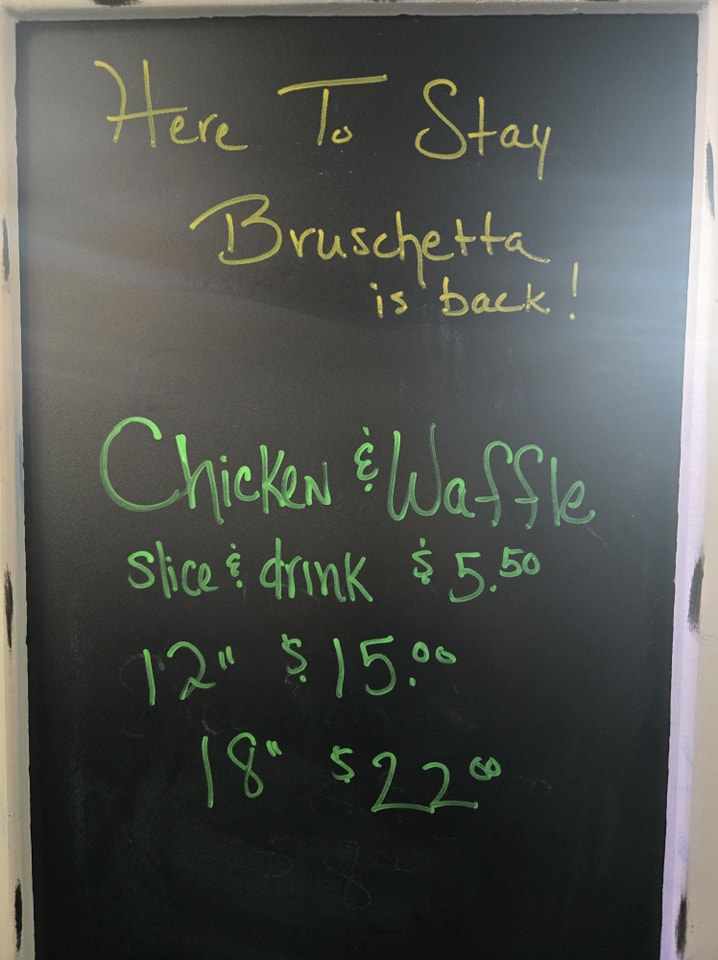 Here To Stay
Bruschetta
is back!
Chicken & Waffle
slice & drink $5.50
12" $15.00
18" $22.00